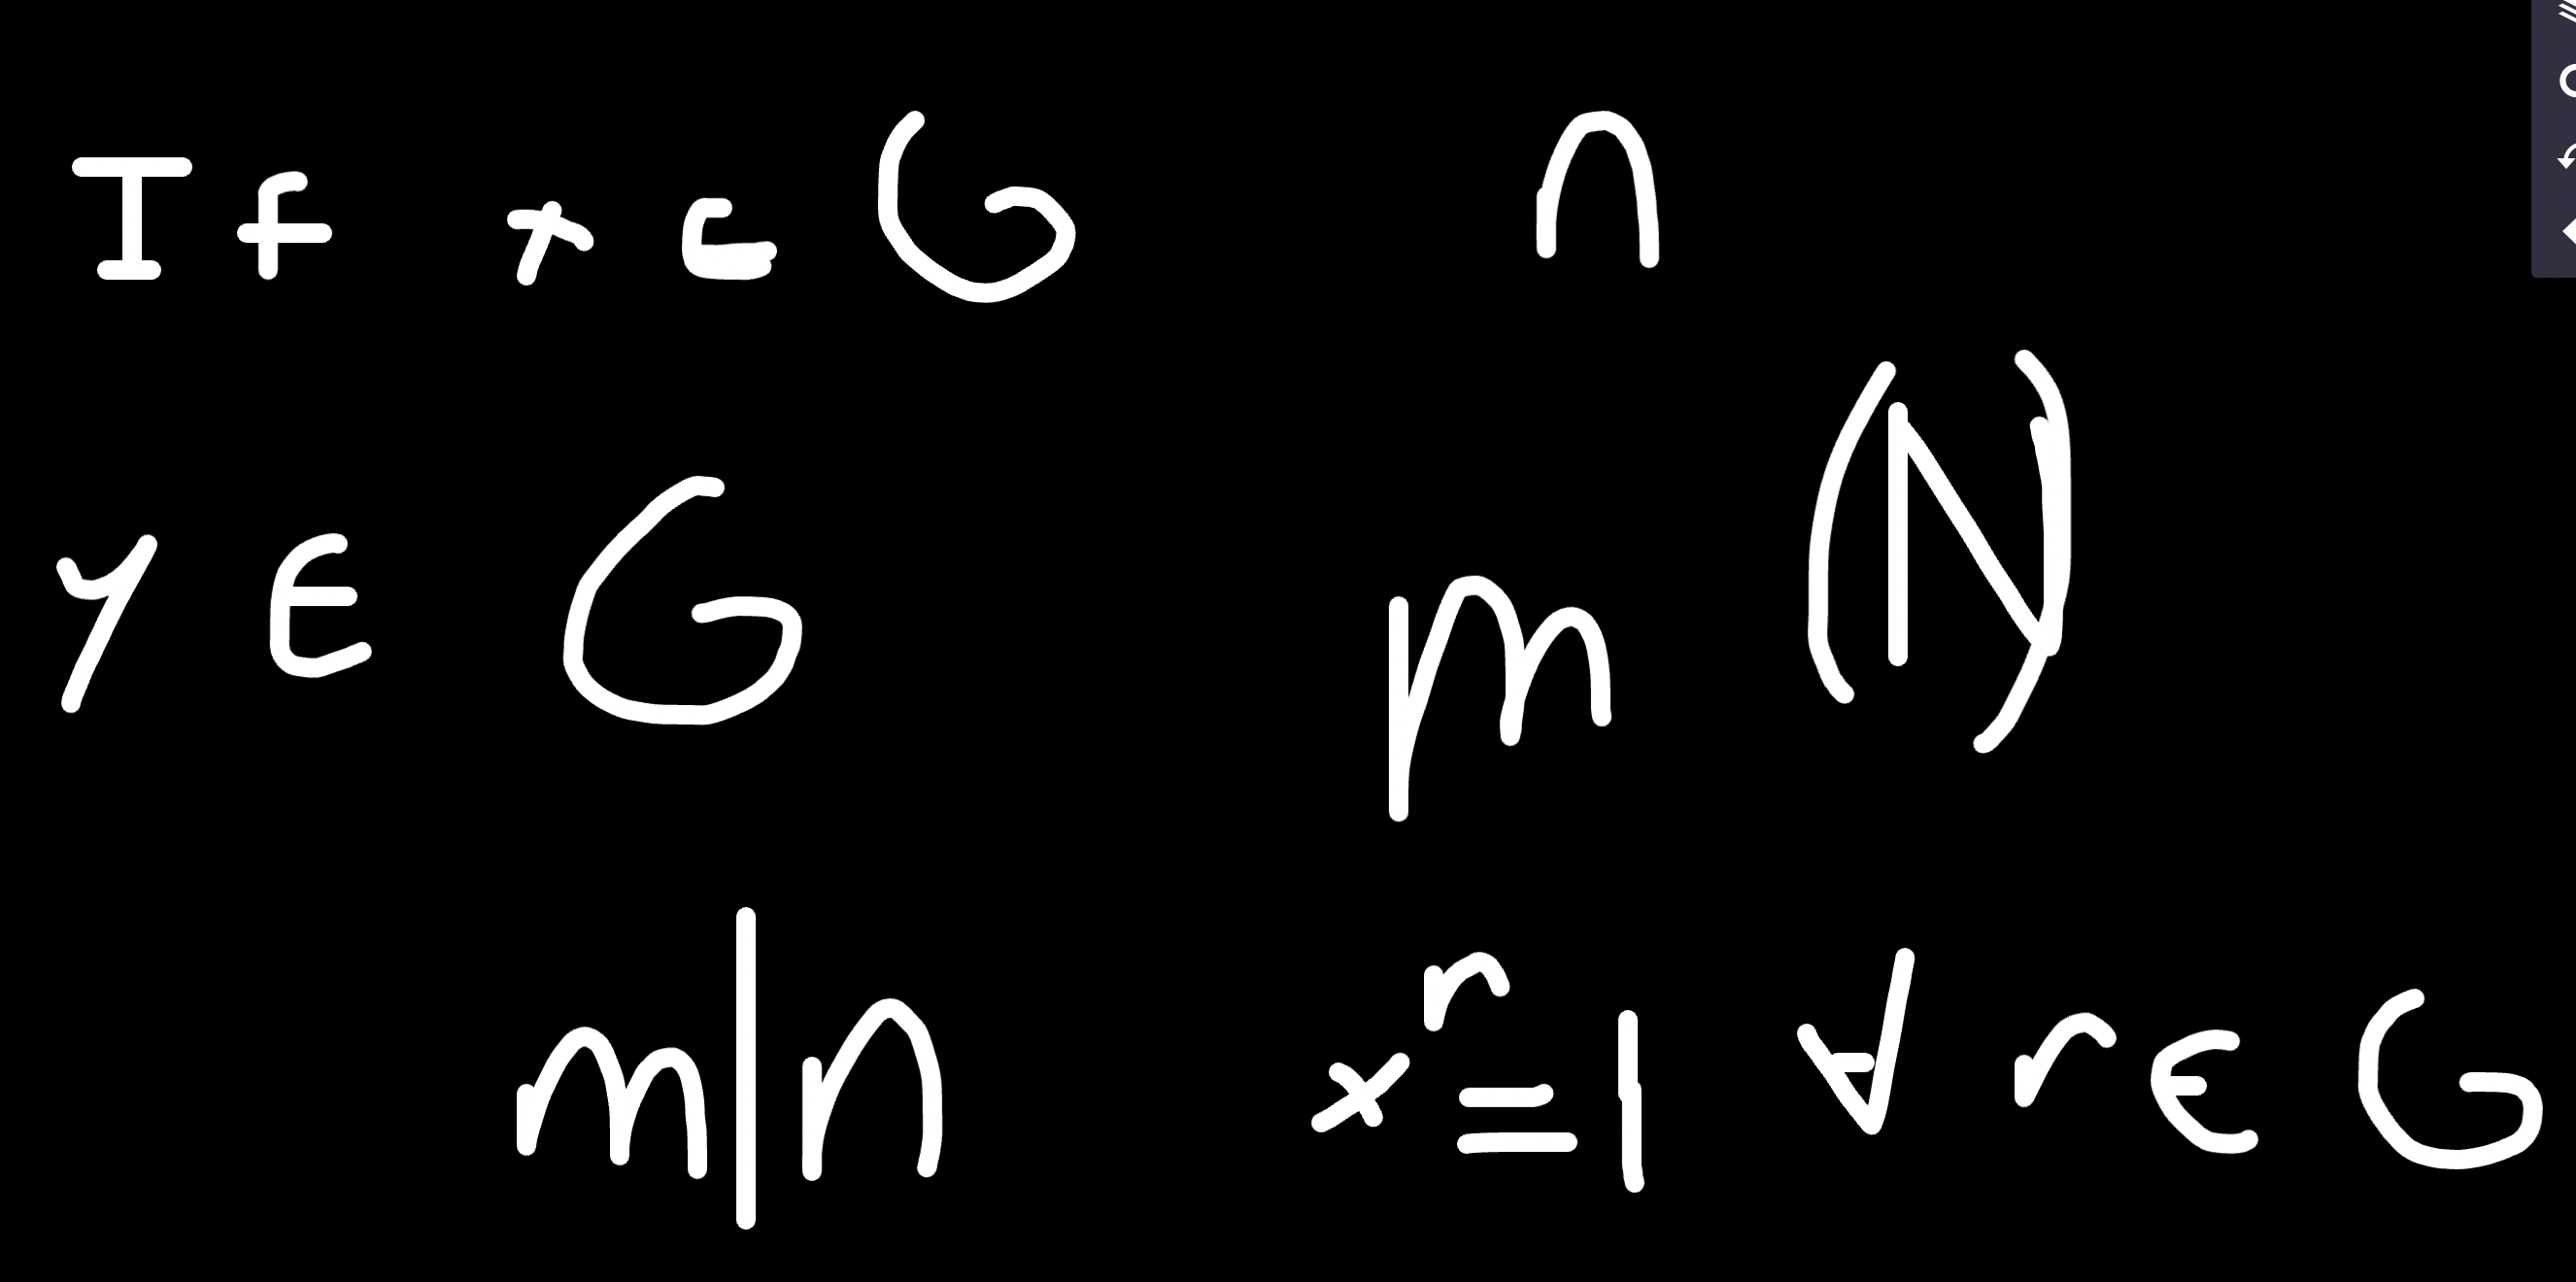 If x ∈ G n
y ∈ G m (N)
m|n x^r = 1 ∀ r ∈ G